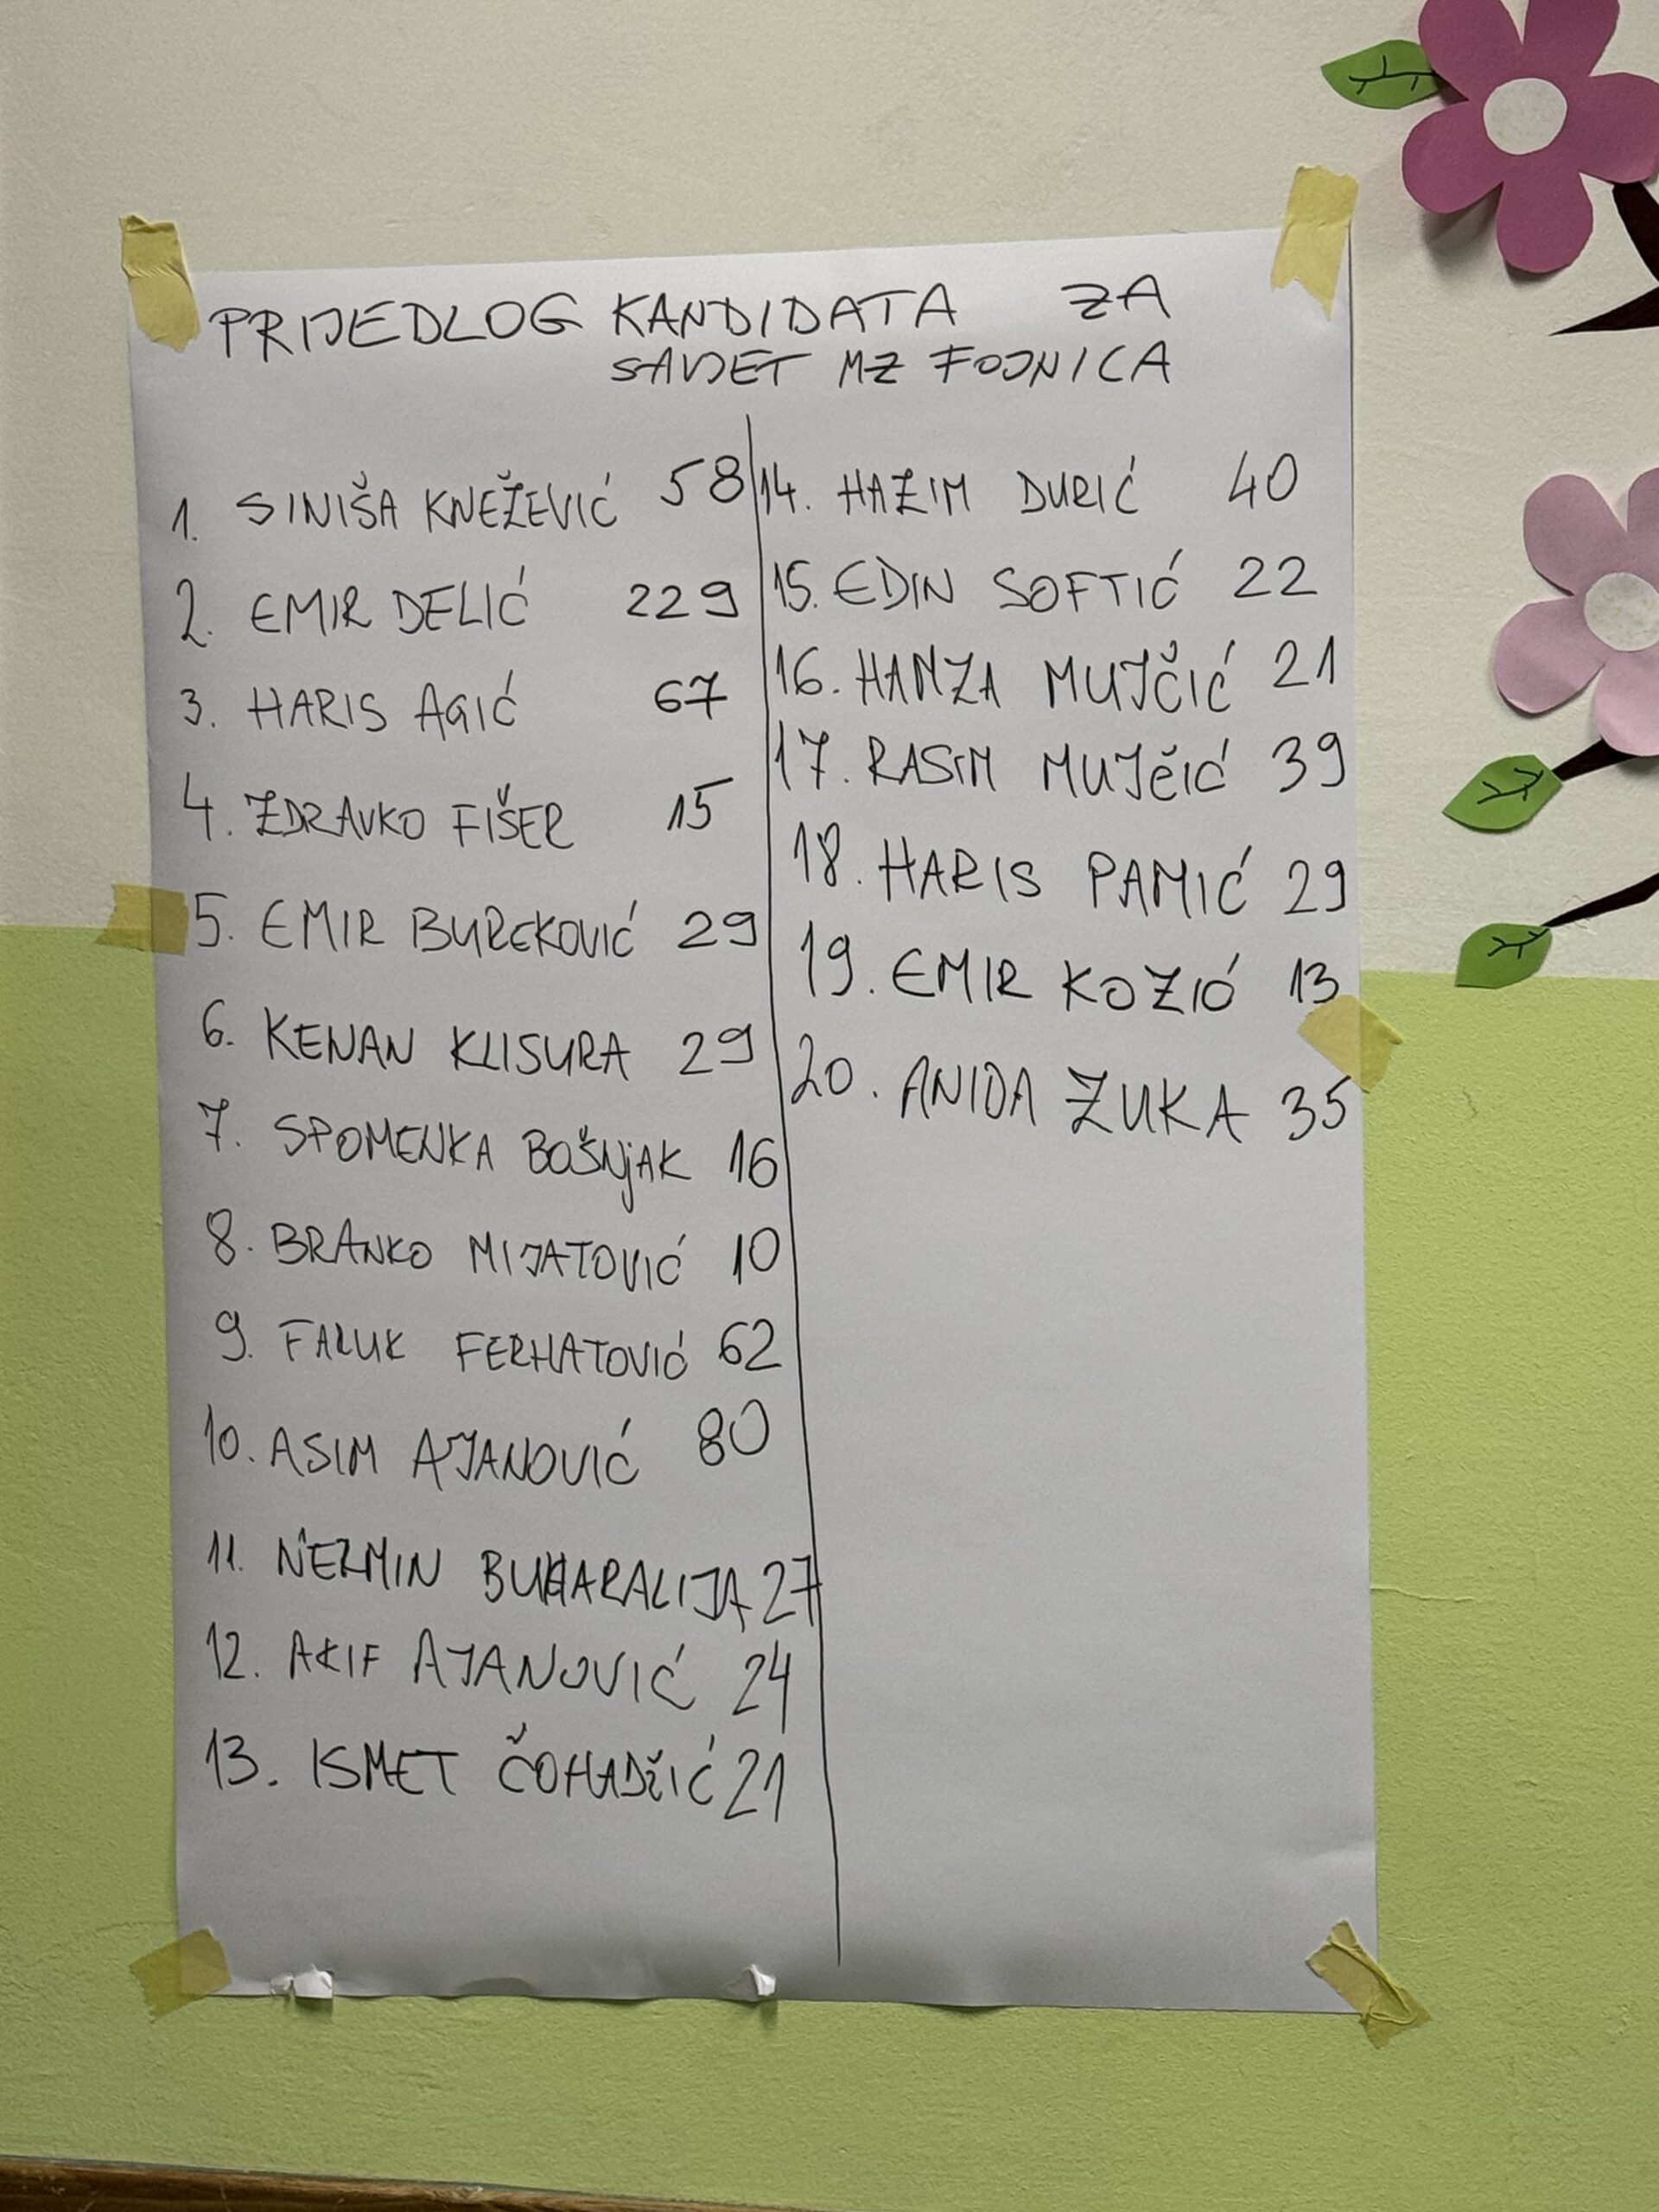 PRIJEDLOG KANDIDATA ZA
SAVJET MZ FOJNICA
1. SINIŠA KNEŽEVIĆ 58
2. EMIR DELIĆ 229
3. HARIS AGIĆ 67
4. ZDRAVKO FIŠER 15
5. EMIR BUREKOVIĆ 29
6. KENAN KLISURA 29
7. SPOMENKA BOŠNjAK 16
8. BRANKO MIJATOVIĆ 10
9. FARUK FERHATOVIĆ 62
10. ASIM AJANOVIĆ 80
11. NERMIN BUHARALIJA 27
12. AKIF AJANOVIĆ 24
13. ISMET ČOHADŽIĆ 21
14. HAZIM DURIĆ 40
15. EDIN SOFTIĆ 22
16. HAMZA MUJČIĆ 21
17. RASIM MUJČIĆ 39
18. HARIS PAMIĆ 29
19. EMIR KOZIĆ 13
20. ANIDA ZUKA 35